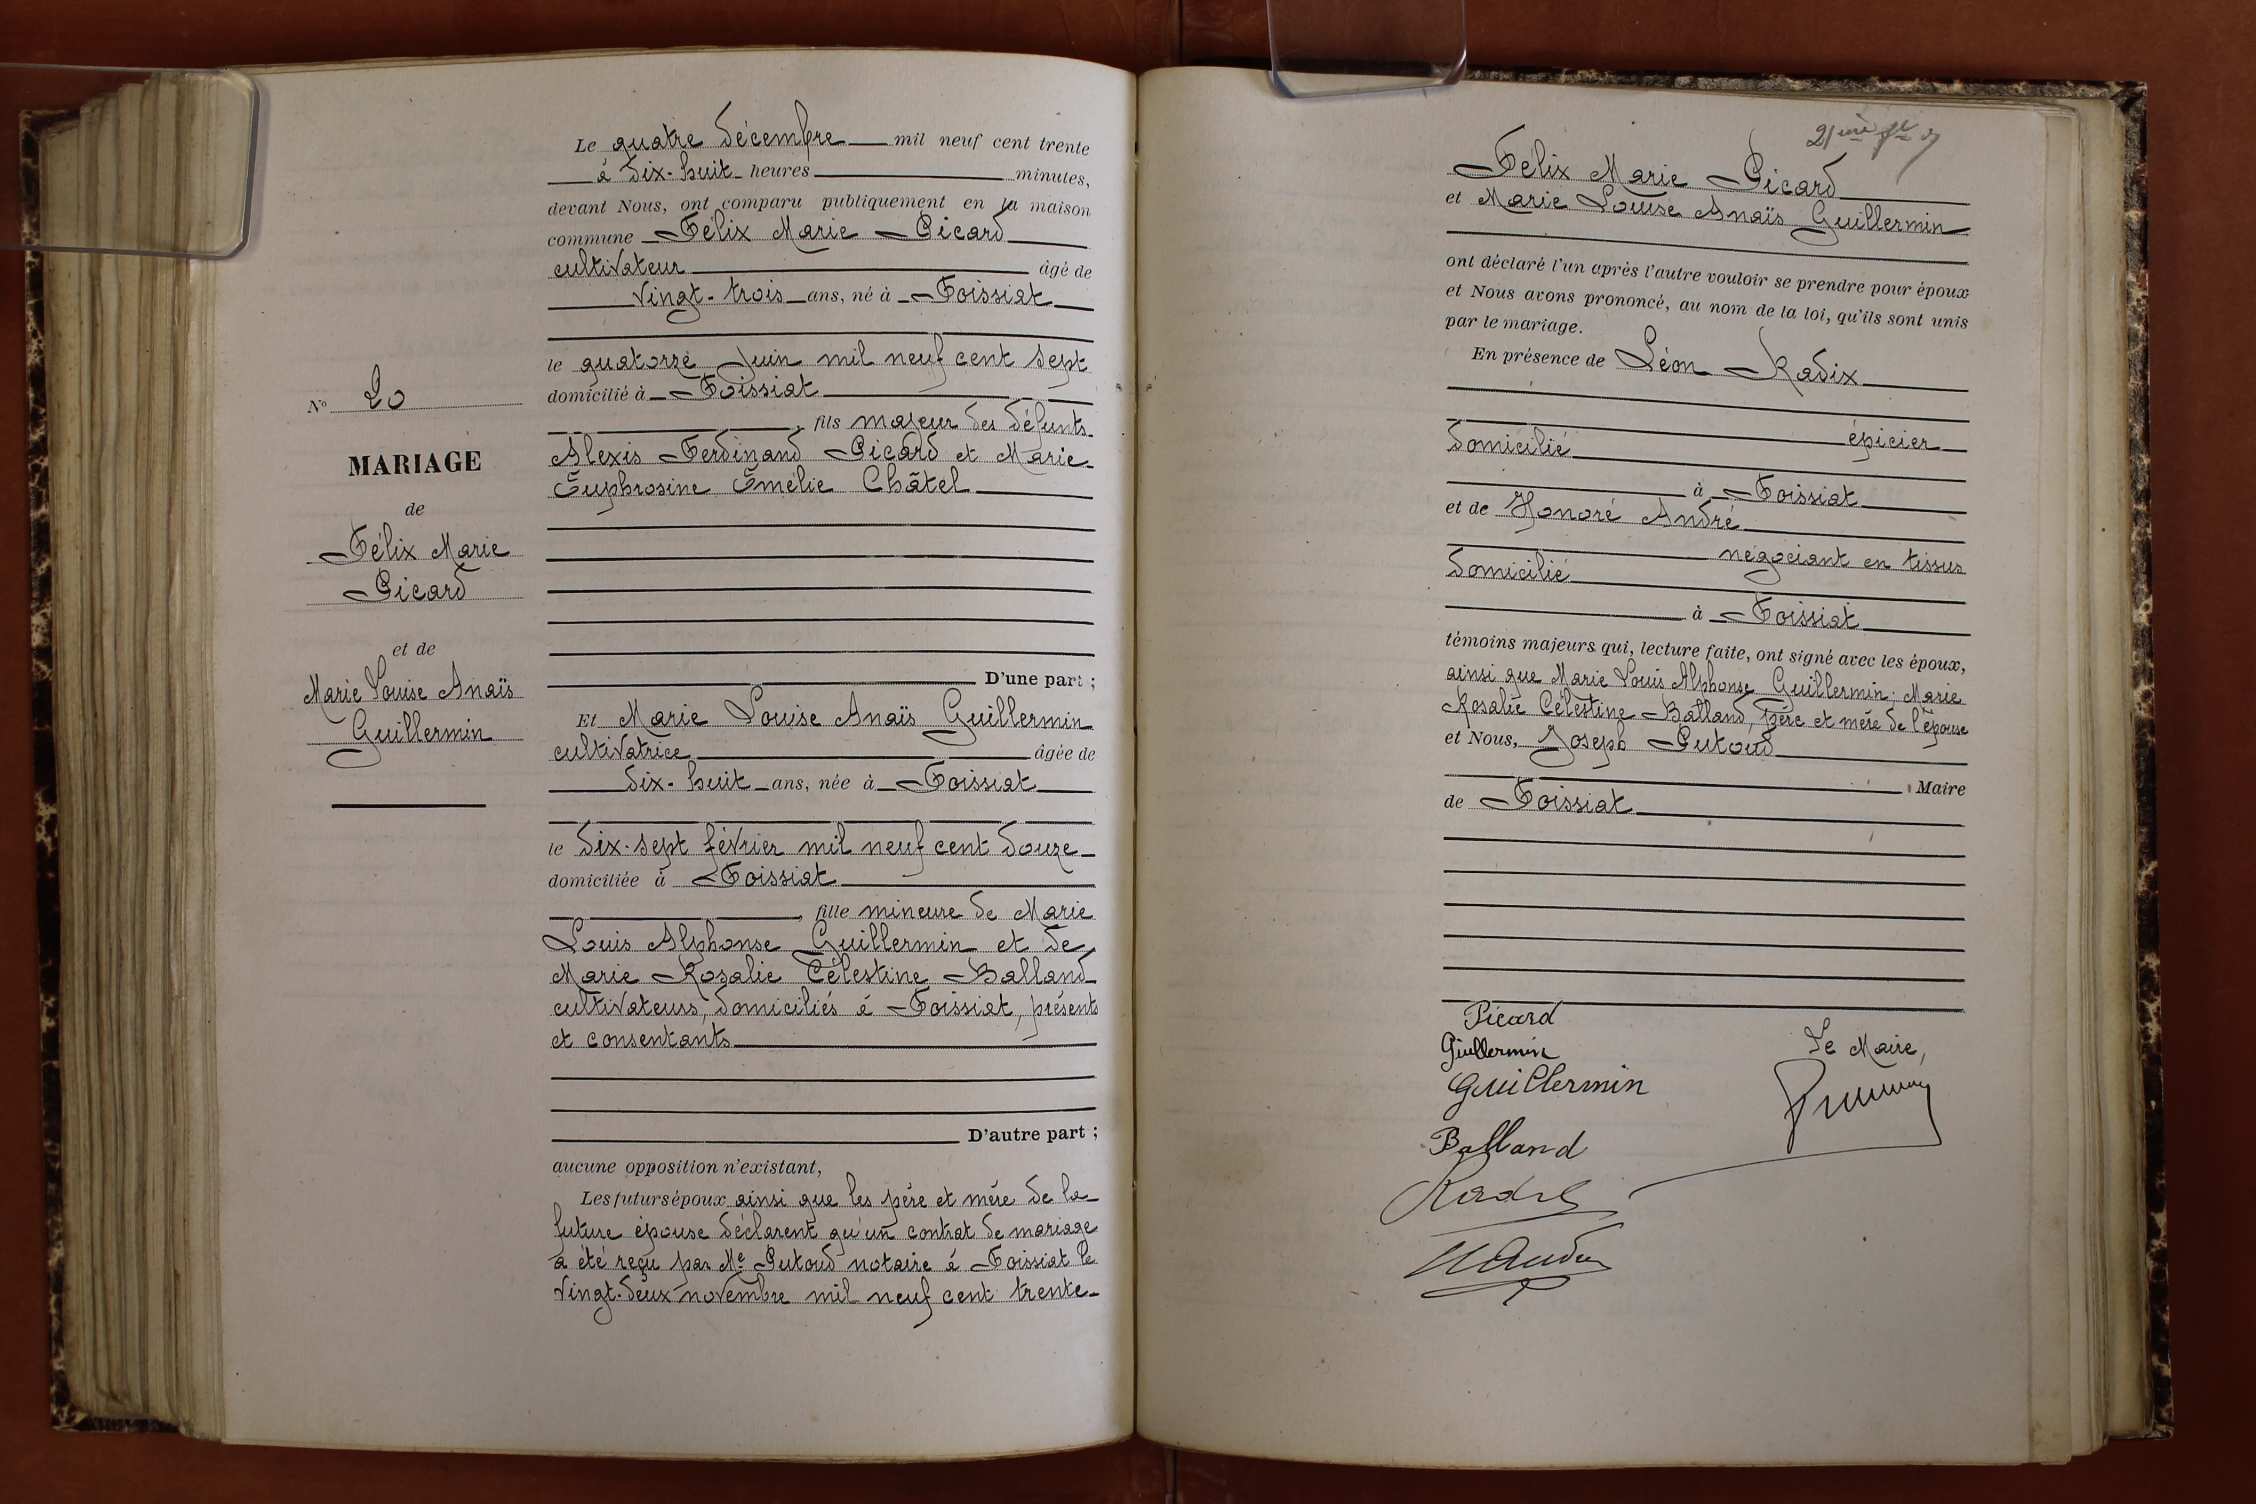 Le quatre décembre mil neuf cent trente
à dix-huit heures minutes,
devant Nous, ont comparu publiquement en la maison
commune Félix Marie Picard
cultivateur âgé de
vingt-trois ans, né à Foissiat
le quatorze Juin mil neuf cent sept
domicilié à Foissiat
, fils majeur des défunts
Alexis Ferdinand Picard et Marie
Euphrosine Emélie Châtel
D'une part ;
Et Marie Louise Anaïs Guillermin
cultivatrice âgée de
dix-huit ans, née à Foissiat
le dix-sept février mil neuf cent douze
domiciliée à Foissiat
, fille mineure de Marie
Louis Alphonse Guillermin et de
Marie Rosalie Célestine Balland
cultivateurs, domiciliés à Foissiat, présents
et consentants
D'autre part ;
aucune opposition n'existant,
Les futurs époux ainsi que les père et mère de la
future épouse déclarent qu'un contrat de mariage
a été reçu par Me Putoud notaire à Foissiat le
vingt-deux novembre mil neuf cent trente
No 20
MARIAGE
de
Félix Marie
Picard
et de
Marie Louise Anaïs
Guillermin
21ème
Félix Marie Picard
et Marie Louise Anaïs Guillermin
ont déclaré l'un après l'autre vouloir se prendre pour époux
et Nous avons prononcé, au nom de la loi, qu'ils sont unis
par le mariage.
En présence de Léon Radix
épicier
domicilié
à Foissiat
et de Honoré André
négociant en tissus
domicilié
à Foissiat
témoins majeurs qui, lecture faite, ont signé avec les époux,
ainsi que Marie Louis Alphonse Guillermin; Marie
Rosalie Célestine Balland, père et mère de l'épouse
et Nous, Joseph Putoud
, Maire
de Foissiat
Picard
Guillermin
Guillermin
Balland
Radix
H André
Le Maire,